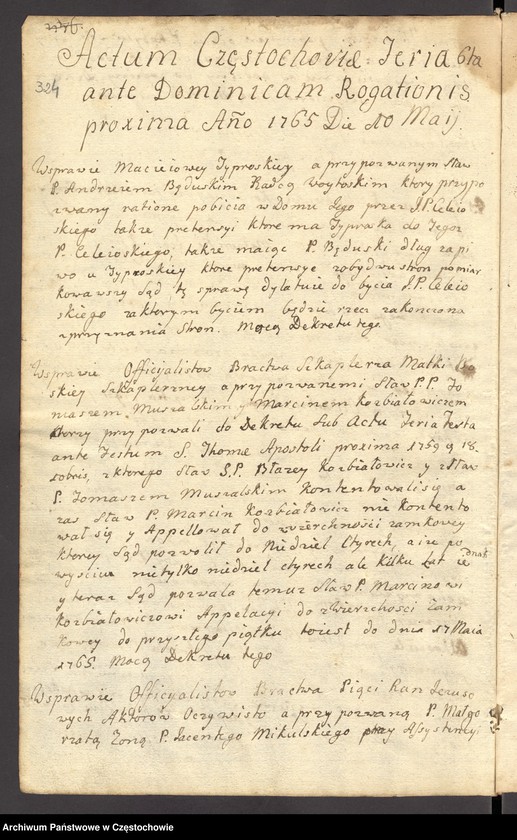 324
Actum Częstochoviæ Feria 6ta
ante Dominicam Rogationis
proxima Año 1765 Die 10 Maij
Wsprawie Macieiowey Typroskiey a przypozwanym Sław
P. Andrzeiem Będuskim Raďcą woytoskim ktory przypo
zwany ratione pobicia w Domu Jego przez J.P. Celeio
skiego także pretensyi ktore ma Typroska do Tegoz
P. Celeioskiego, takze maiąc P. Będuski dług za pi
wo u Typroskiey ktore pretensye zobydwu stron pomiar
kowawszy Sąd tę sprawę dylatuie do bycia J.P. Celeio
skiego za ktorym byciem będzie rzecz zakonczona
zprzyznania stron. Mocą Dekretu tego
Wsprawie Officyalistow Bractwa Szkaplerza Matki Bo
skiey Szkaplerzney a przypozwanemi Sław P.P. To
maszem Muszalskim y Marcinem Kozbiałowiczem
ktorzy przypozwali do Dekretu Sub Actu Feria Sexta
ante Festum S. Thomæ Apostoli proxima 1759 18
bris, z ktorego Sław S.P. Błazey Kozbiałowicz y z Sław
P. Tomaszem Muszalskim kontentowali się a
zas Sław P. Marcin Kozbiałowicz nie kontento
wał się y Appellował do zwierchności zamkowey
ktorey Sąd pozwolił do Niedziel Czterech, a ize po
wyściu nietylko niedziel cztyrech ale kilku lat ie
dnak
y teraz Sąd pozwala temuz Sław P. Marcinowi
Kozbiałowiczowi Appelacyi do zwierchosci Zam
kowey do przyszłego piątku toiest do dnia 17 Maia
1765. Mocą Dekretu tego
Wsprawie Officyalistow Bractwa Pięci Ran Jezuso
wych Aktorow Oczywisto a przypozwaną P. Małgo
rzatą Zoną P. Jacentego Mikulskiego przy Assystencyi
Archiwum Państwowe w Częstochowie